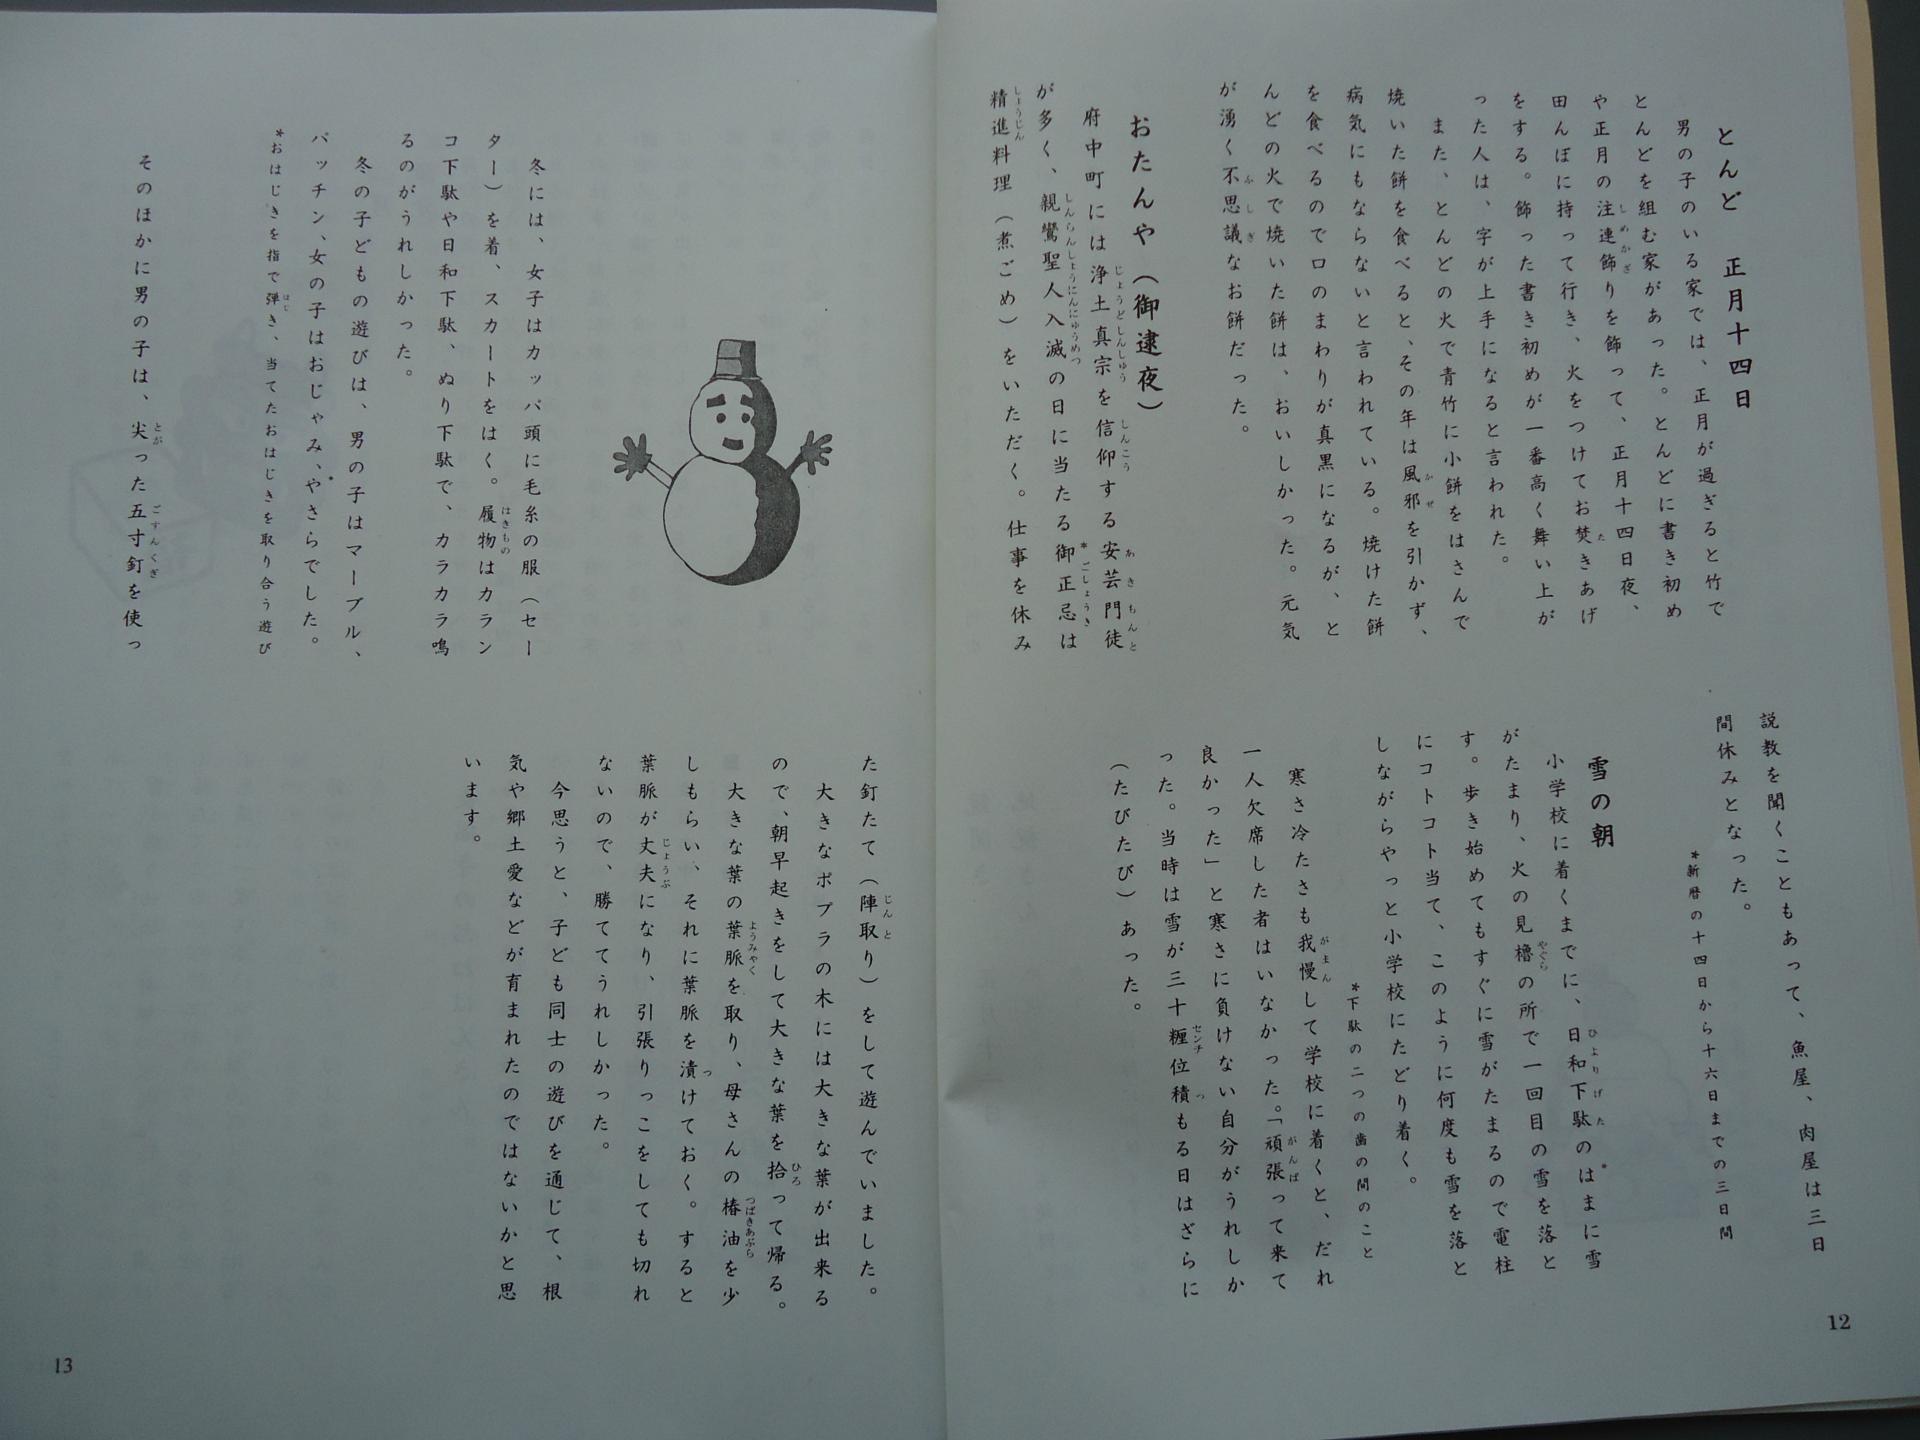 とんど　正月十四日
男の子のいる家では、正月が過ぎると竹で
とんどを組む家があった。とんどに書き初め
や正月の注連飾りを飾って、正月十四日夜、
田んぼに持って行き、火をつけてお焚きあげ
をする。飾った書き初めが一番高く舞い上が
った人は、字が上手になると言われた。
また、とんどの火で青竹に小餅をはさんで
焼いた餅を食べると、その年は風邪を引かず、
病気にもならないと言われている。焼けた餅
を食べるので口のまわりが真黒になるが、と
んどの火で焼いた餅は、おいしかった。元気
が湧く不思議なお餅だった。
おたんや（御逮夜）
府中町には浄土真宗を信仰する安芸門徒
が多く、親鸞聖人入滅の日に当たる御正忌は
精進料理（煮ごめ）をいただく。仕事を休み
説教を聞くこともあって、魚屋、肉屋は三日
間休みとなった。
*新暦の十四日から十六日までの三日間
雪の朝
小学校に着くまでに、日和下駄のはまに雪
がたまり、火の見櫓の所で一回目の雪を落と
す。歩き始めてもすぐに雪がたまるので電柱
にコトコト当て、このように何度も雪を落と
しながらやっと小学校にたどり着く。
*下駄の二つの歯の間のこと
寒さ冷たさも我慢して学校に着くと、だれ
一人欠席した者はいなかった。「頑張って来て
良かった」と寒さに負けない自分がうれしか
った。当時は雪が三十糎位積もる日はざらに
（たびたび）あった。
12
冬には、女子はカッパ頭に毛糸の服（セー
ター）を着、スカートをはく。履物はカラン
コ下駄や日和下駄、ぬり下駄で、カラカラ鳴
るのがうれしかった。
冬の子どもの遊びは、男の子はマーブル、
パッチン、女の子はおじゃみ、やさらでした。
*おはじきを指で弾き、当てたおはじきを取り合う遊び
そのほかに男の子は、尖った五寸釘を使っ
た釘たて（陣取り）をして遊んでいました。
大きなポプラの木には大きな葉が出来る
ので、朝早起きをして大きな葉を拾って帰る。
大きな葉の葉脈を取り、母さんの椿油を少
しもらい、それに葉脈を漬けておく。すると
葉脈が丈夫になり、引張りっこをしても切れ
ないので、勝ててうれしかった。
今思うと、子ども同士の遊びを通じて、根
気や郷土愛などが育まれたのではないかと思
います。
13